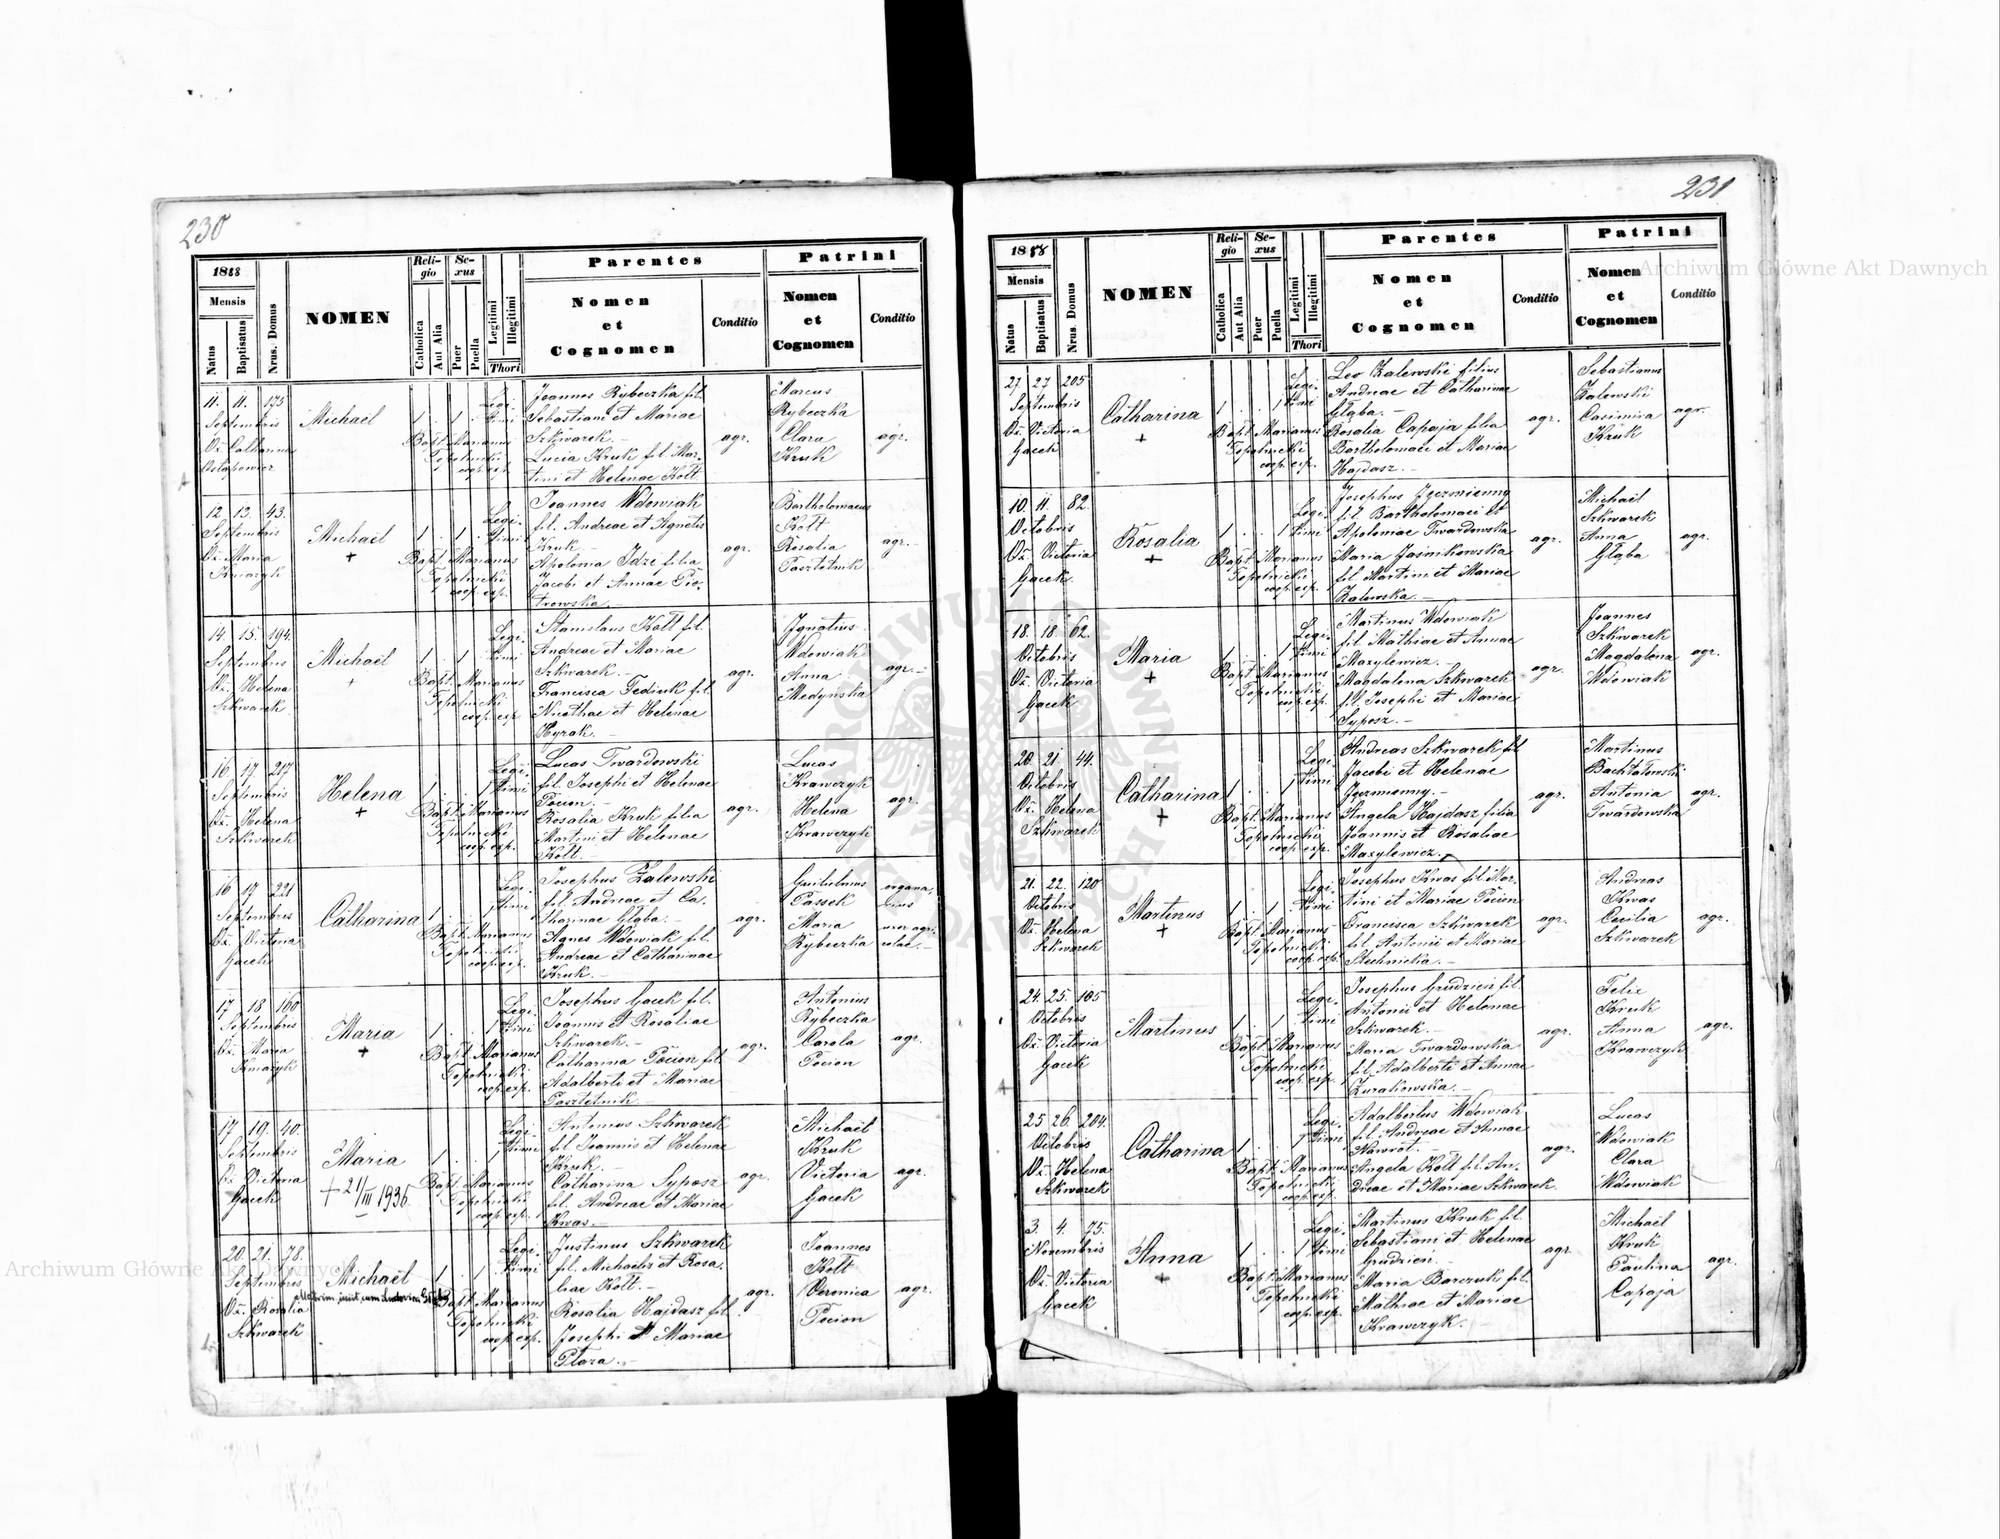 230
1888
Mensis
Natus
Baptisatus
Nrus. Domus
NOMEN
Reli-
gio
Catholica
Aut Alia
Se-
xus
Puer
Puella
Legitimi
Illegitimi
Thori
Parentes
Nomen
et
Cognomen
Conditio
Patrini
Nomen
et
Cognomen
Conditio
11. 11. 175
Septembris
Oż. Catharina
Ostapowicz
Michaël
1 . 1 .
Legi-
timi
Bapt. Marianus
Topolnicki
coop. exp.
Joannes Rybeczka fil.
Sebastiani et Mariae
Szkwarek. -
Lucia Kruk fil. Mar-
tini et Helenae Kołt
agr.
Marcus
Rybeczka
Clara
Kruk
agr.
12. 13. 43.
Septembris
Oż. Maria
Kmazyk
Michaël
+
1 . 1 .
Legi-
timi
Bapt. Marianus
Topolnicki
coop. exp.
Joannes Wdowiak
fil. Andreae et Agnetis
Kruk -
Apolonia Idzi filia
Jacobi et Annae Pio-
trowska. -
agr.
Bartholomaeus
Kołt
Rosalia
Pasztetnik
agr. -
14. 15. 194.
Septembris
Oż. Helena
Szkwarek
Michaël
+
1 . 1 .
Legi-
timi
Bapt. Marianus
Topolnicki
coop. exp.
Stanislaus Kołt fil.
Andreae et Mariae
Szkwarek. -
Francisca Fediuk fil.
Nicolhae et Helenae
Hyrak. -
agr.
Ignatius
Wdowiak
Anna
Medyńska
agr. -
16. 17. 217
Septembris
Oż. Helena
Szkwarek
Helena
+
1 . . 1
Legi-
timi
Bapt. Marianus
Topolnicki
coop. exp.
Lucas Twardowski
fil. Josephi et Helenae
Pocion. -
Rosalia Kruk filia
Martini et Helenae
Kołt. -
agr.
Lucas
Krawczyk
Helena
Krawczyk
agr.
16 17 221
Septembris
Oż. Victoria
Gacek
Catharina
1 . . 1
Legi-
timi
Bapt. Marianus
Topolnicki
coop. exp.
Josephus Zalewski
fil. Andreae et Ca-
tharinae Głąba. -
Agnes Wdowiak fil.
Andreae et Catharinae
Kruk. -
agr.
Guilelmus
Passek
Maria
Rybeczka
organa-
rius
uxor agri-
colae. -
17 18 160
Septembris
Oż. Maria
Kmazyk
Maria
+
1 . . 1
Legi-
timi
Bapt. Marianus
Topolnicki
coop. exp.
Josephus Gacek fil.
Joannis et Rosaliae
Szkwarek. -
Catharina Pocion fil.
Adalberti et Mariae
Pasztetnik. -
agr.
Antonius
Rybeczka
Carola
Pocion
agr.
17. 19. 40.
Septembris
Oż. Victoria
Gacek
Maria
+ 21/III 1936
1 . . 1
Legi-
timi
Bapt. Marianus
Topolnicki
coop. exp.
Antonius Szkwarek
fil. Joannis et Helenae
Kruk. -
Catharina Syposz
fil. Andreae et Mariae
Kwas. -
agr.
Michaël
Kruk
Victoria
Gacek
agr.
20. 21. 78.
Septembris
Oż. Rosalia
Szkwarek
Michaël
1 . 1 .
Legi-
timi
Bapt. Marianus
Topolnicki
coop. exp.
Justinus Szkwarek
fil. Michaelis et Rosa-
liae Kołt. -
Rosalia Hajdasz fil.
Josephi et Mariae
Płaza. -
agr.
Joannes
Kołt
Veronica
Pocion
agr.
231
1888
Mensis
Natus
Baptisatus
Nrus. Domus
NOMEN
Reli-
gio
Catholica
Aut Alia
Se-
xus
Puer
Puella
Legitimi
Illegitimi
Thori
Parentes
Nomen
et
Cognomen
Conditio
Patrini
Nomen
et
Cognomen
Conditio
27. 27 205
Septembris
Oż. Victoria
Gacek
Catharina
+
1 . . 1
Legi-
timi
Bapt. Marianus
Topolnicki
coop. exp.
Leo Zalewski filius
Andreae et Catharinae
Głąba. -
Rosalia Capaja filia
Bartholomaei et Mariae
Hajdasz. -
agr.
Sebastianus
Zalewski
Casimira
Kruk
agr.
10. 11. 82.
Octobris
Oż. Victoria
Gacek
Rosalia
+
1 . . 1
Legi-
timi
Bapt. Marianus
Topolnicki
coop. exp.
Josephus Jęczmienny
fil. Bartholomaei et
Apoloniae Twardowska
Maria Jaśnikowska
fil. Martini et Mariae
Zalewska. -
agr.
Michaël
Szkwarek
Anna
Głąba
agr.
18. 18. 62.
Octobris
Oż. Victoria
Gacek
Maria
+
1 . . 1
Legi-
timi
Bapt. Marianus
Topolnicki
coop. exp.
Martinus Wdowiak
fil. Mathiae et Annae
Mazylewicz. -
Magdalena Szkwarek
fil. Josephi et Mariae
Syposz. -
agr.
Joannes
Szkwarek
Magdalena
Wdowiak
agr.
20. 21. 44.
Octobris
Oż. Helena
Szkwarek
Catharina
+
1 . . 1
Legi-
timi
Bapt. Marianus
Topolnicki
coop. exp.
Andreas Szkwarek fil.
Jacobi et Helenae
Jęczmienny. -
Angela Hajdasz filia
Joannis et Rosaliae
Mazylewicz. -
agr.
Martinus
Bachtałowski
Antonia
Twardowska
agr.
21. 22. 120
Octobris
Oż. Helena
Szkwarek
Martinus
+
1 . 1 .
Legi-
timi
Bapt. Marianus
Topolnicki
coop. exp.
Josephus Kwas fil. Mar-
tini et Mariae Pocion
Francisca Szkwarek
fil. Antonii et Mariae
Stechnicka. -
agr.
Andreas
Kwas
Cecilia
Szkwarek
agr.
24. 25. 105
Octobris
Oż. Victoria
Gacek
Martinus
1 . 1 .
Legi-
timi
Bapt. Marianus
Topolnicki
coop. exp.
Josephus Grudzień fil.
Antonii et Helenae
Szkwarek. -
Maria Twardowska
fil. Adalberti et Annae
Żurakowska. -
agr.
Felix
Kruk
Anna
Krawczyk
agr.
25 26. 204.
Octobris
Oż. Helena
Szkwarek
Catharina
1 . . 1
Legi-
timi
Bapt. Marianus
Topolnicki
coop. exp.
Adalbertus Wdowiak
fil. Andreae et Annae
Nawrot. -
Angela Kołt fil. An-
dreae et Mariae Szkwarek.
agr.
Lucas
Wdowiak
Clara
Wdowiak
agr.
3. 4. 75.
Novembris
Oż. Victoria
Gacek
Anna
+
1 . . 1
Legi-
timi
Bapt. Marianus
Topolnicki
coop. exp.
Martinus Kruk fil.
Sebastiani et Helenae
Grudzień. -
Maria Barczuk fil.
Mathiae et Mariae
Krawczyk. -
agr.
Michaël
Kruk
Paulina
Capaja
agr.
Archiwum Główne Akt Dawnych
Archiwum Główne Akt Dawnych
ARCHIWUM GŁÓWNE
AKT DAWNYCH